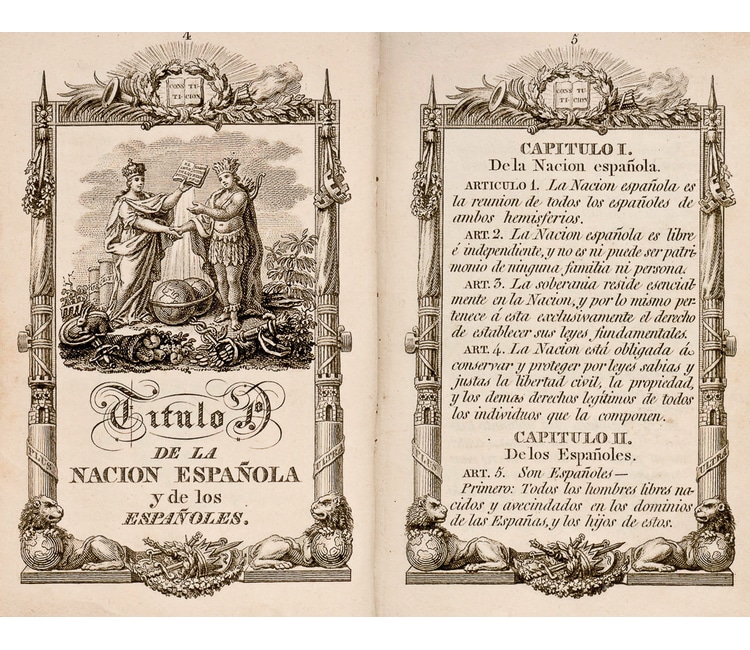 4
CONS TU-
TI- CION
Titulo 1º
DE LA
NACION ESPAÑOLA
y de los
ESPAÑOLES.
PLUS
ULTRA
5
CONS TU-
TI- CION
CAPITULO I.
De la Nacion española.
ARTICULO 1. La Nacion española es
la reunion de todos los españoles de
ambos hemisferios.
ART. 2. La Nacion española es libre
é independiente, y no es ni puede ser patri-
monio de ninguna familia ni persona.
ART. 3. La soberania reside esencial-
mente en la Nacion, y por lo mismo per-
tenece á esta exclusivamente el derecho
de establecer sus leyes fundamentales.
ART. 4. La Nacion está obligada á
conservar y proteger por leyes sabias y
justas la libertad civil, la propiedad,
y los demas derechos legítimos de todos
los individuos que la componen.
CAPITULO II.
De los Españoles.
ART. 5. Son Españoles—
Primero: Todos los hombres libres na-
cidos y avecindados en los dominios
de las Españas, y los hijos de estos.
PLUS
ULTRA